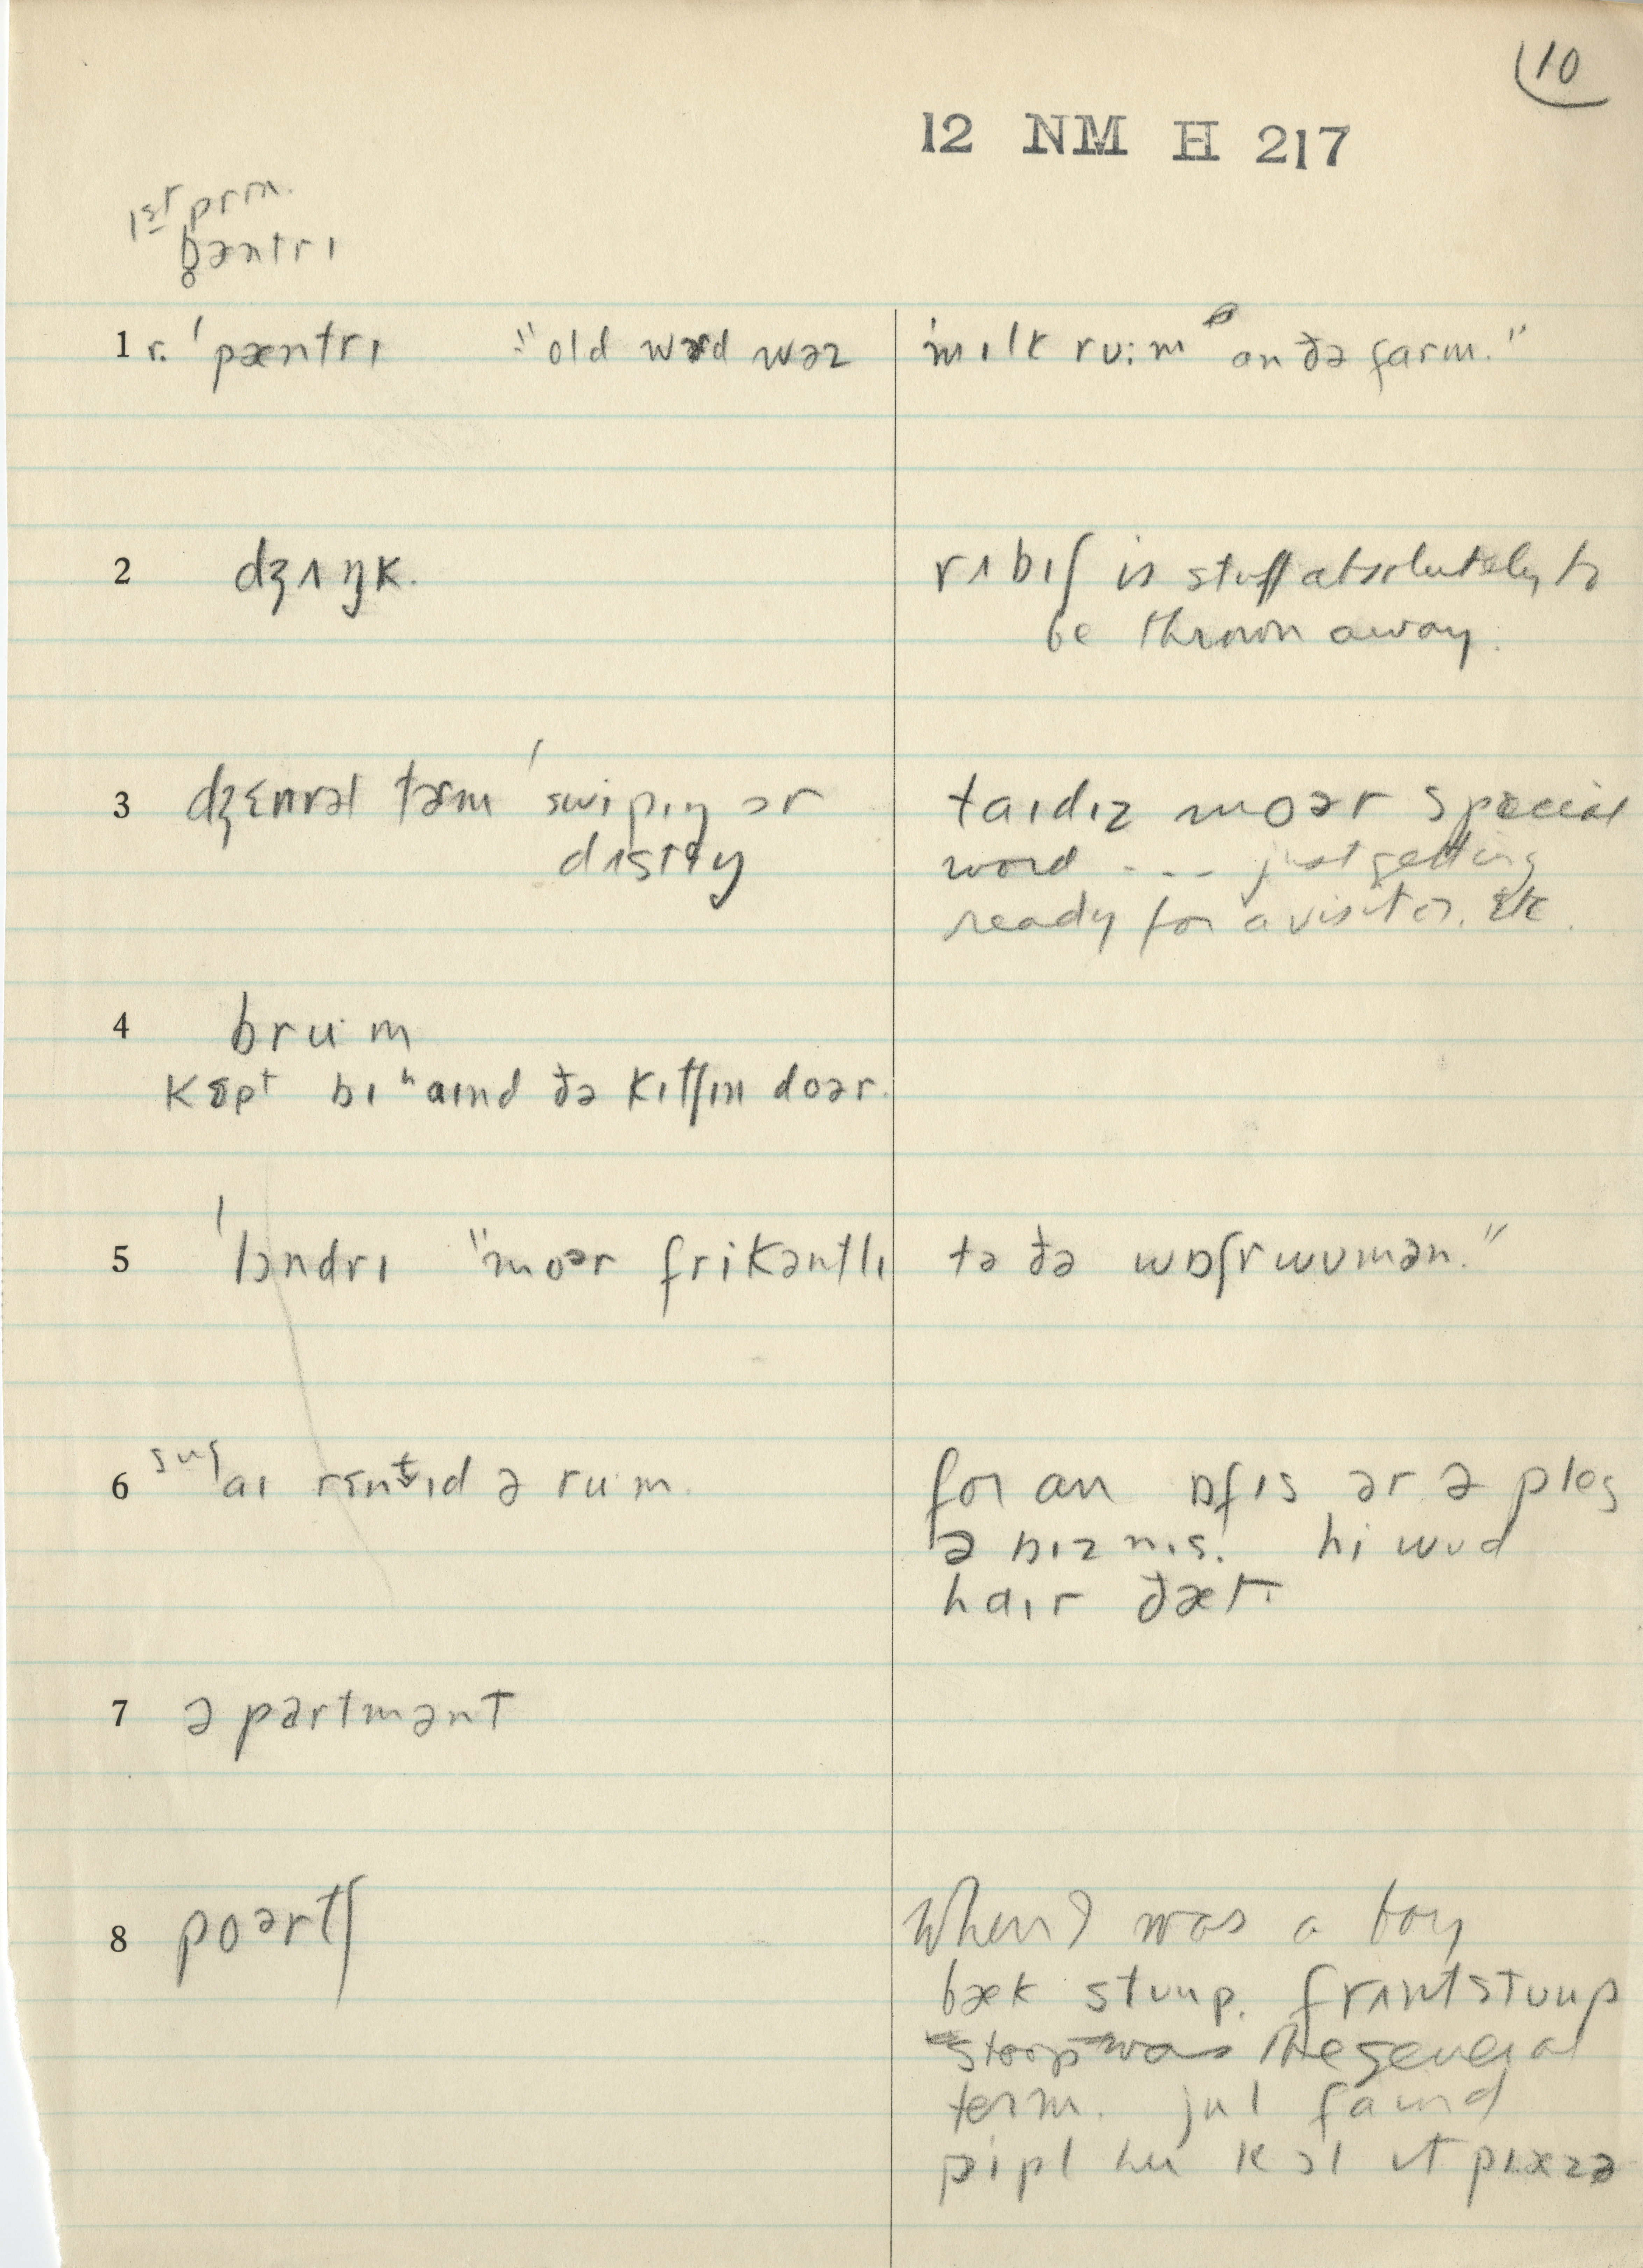 10
12 NM H 217
1st prm.
b̥əntrɪ
1 r. ˈpæntrɪ "old wərd wəz mɪlk ruːm on ðə farm."
2 dʒʌŋk. rʌbɪʃ is stuff absolutely to
be thrown away.
3 dʒɛnrəl tərm ˈswipɪŋ ɔr taɪdɪz moər special
dʌstɪŋ word --- just getting
ready for a visitor. etc.
4 bru·m
kɛpt bɪʰaɪnd ðə kɪtʃɪn doər.
5 ˈlɔndrɪ "moər frikəntlɪ tə ðə wɒʃrwʊmən."
6 sug aɪ rɛntɪd ə rum. for an ɒfɪs ər ə ples
ə bɪznɪs. hi wʊd
haɪr ðæt.
7 əpartmənt
8 poərtʃ When I was a boy
bæk stuup. frʌntstuup
stoop was the general
term. jul faɪnd
pipl hu kɔl ɪt pɪæzə